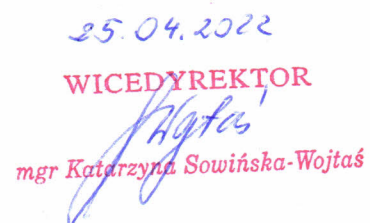 25.04.2022
WICEDYREKTOR
mgr Katarzyna Sowińska-Wojtaś